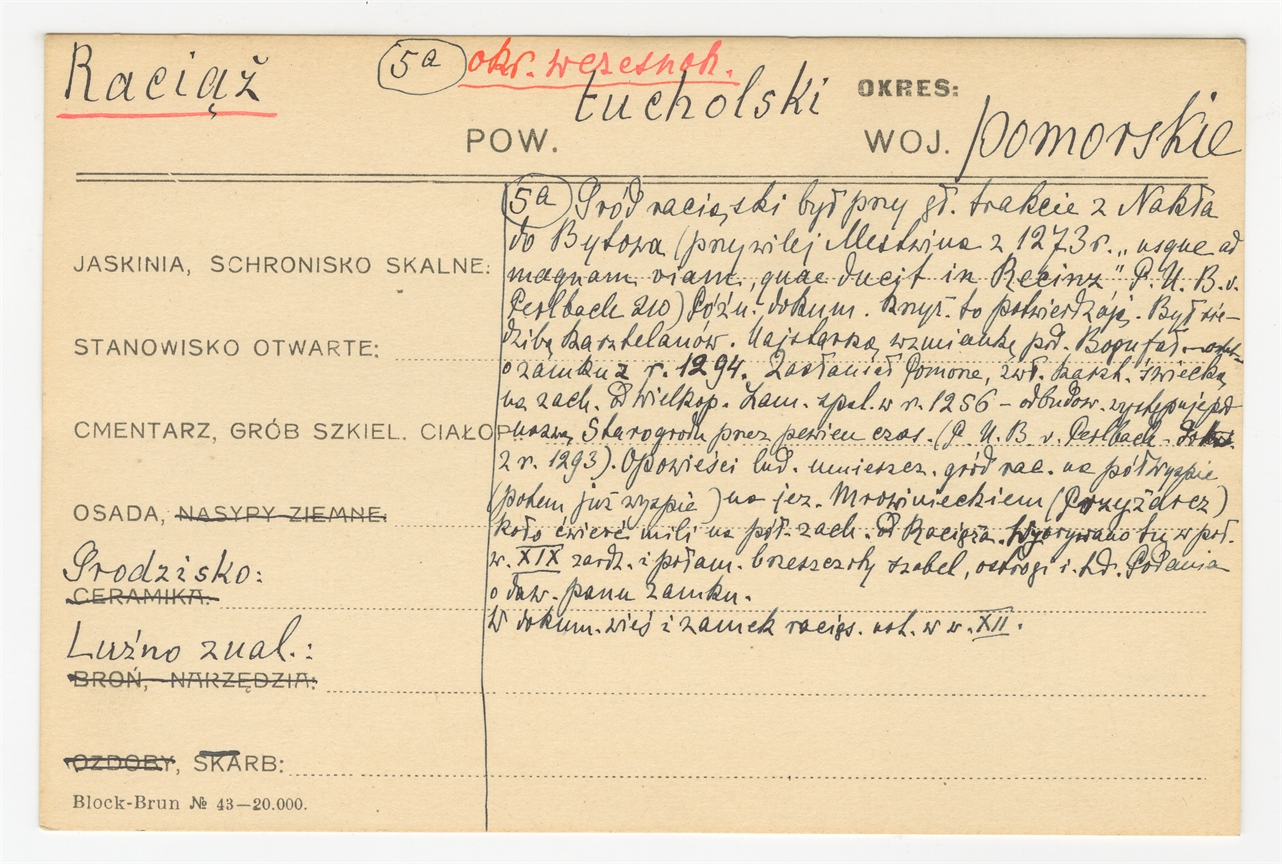 Raciąż
5a okr. wczesnoh.
POW. tucholski
OKRES:
WOJ. pomorskie
JASKINIA, SCHRONISKO SKALNE:
STANOWISKO OTWARTE:
CMENTARZ, GRÓB SZKIEL. CIAŁOP
OSADA, NASYPY ZIEMNE:
Grodzisko:
CERAMIKA:
Luźno znal.:
BROŃ, NARZĘDZIA:
OZDOBY, SKARB:
Block-Brun № 43—20.000.
5a Gród raciąski był przy gł. trakcie z Nakła
do Bytowa (przywilej Mestwina z 1273 r. „usque ad
magnam viam, quae ducit in Recinz" P. U. B. v.
Perlbach 210) Późn. dokum. krzyż. to potwierdzają. Był sie-
dzibą kasztelanów. Najstarszą wzmiankę pod. Bogufał
o zamku z r. 1294. Zasłaniał Pomorze, zwł. kaszt. świecką
na zach. od Wielkop. Zam. spal. w r. 1256 – odbudow. występuje pod
nazwą Starogrodu przez pewien czas. (P. U. B. v. Perlbach
z r. 1293). Opowieści lud. umieszcz. gród rac. na półwyspie
(potem już wyspie) na jez. Mrowinieckiem (Przyżarcz)
koło ćwierć mili na półn. zach. od Raciąża. Wyorywano tu w poł.
w. XIX zardz. i połam. brzeszczoty szabel, ostrogi i t.d. Podania
o daw. panu zamku.
W dokum. wieś i zamek raciąs. not. w w. XII.